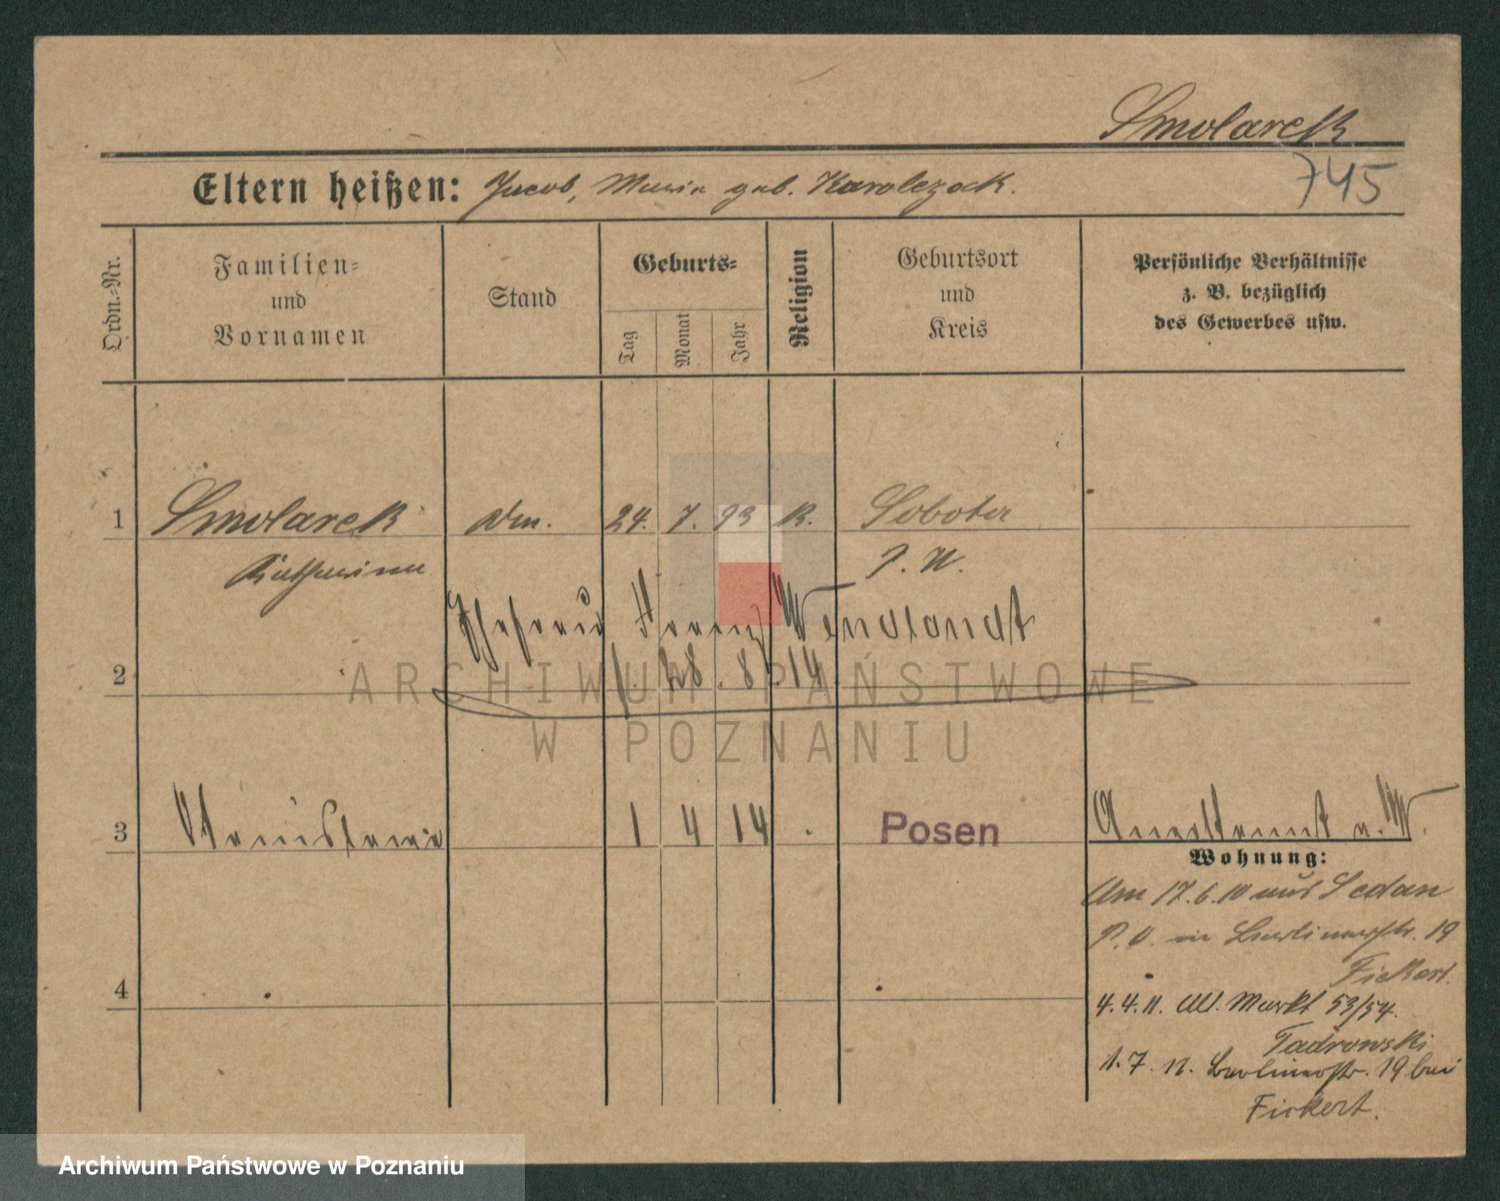 Smolarek
745
Eltern heißen: Jacob, Maria geb. Karolczack.
Ordn.-Nr.
Familien-
und
Vornamen
Stand
Geburts-
Tag
Monat
Jahr
Religion
Geburtsort
und
Kreis
Persönliche Verhältnisse
z. B. bezüglich
des Gewerbes usw.
1 Smolarek 24. 7. 93 K. Sobota
Katharina P. W.
Ehefrau Wendlandt
2 28. 8. 14
ARCHIWUM PAŃSTWOWE
W POZNANIU
3 Stanislawa 1 4 14 Posen
Wohnung:
Am 17.6.10 aus Sedan
P. O. in Berlinerstr. 19
Fickert.
4
4.4.11. Alt. Markt 53/54.
Tadrowski
1.7.11. Berlinerstr. 19 bei
Fickert.
Archiwum Państwowe w Poznaniu